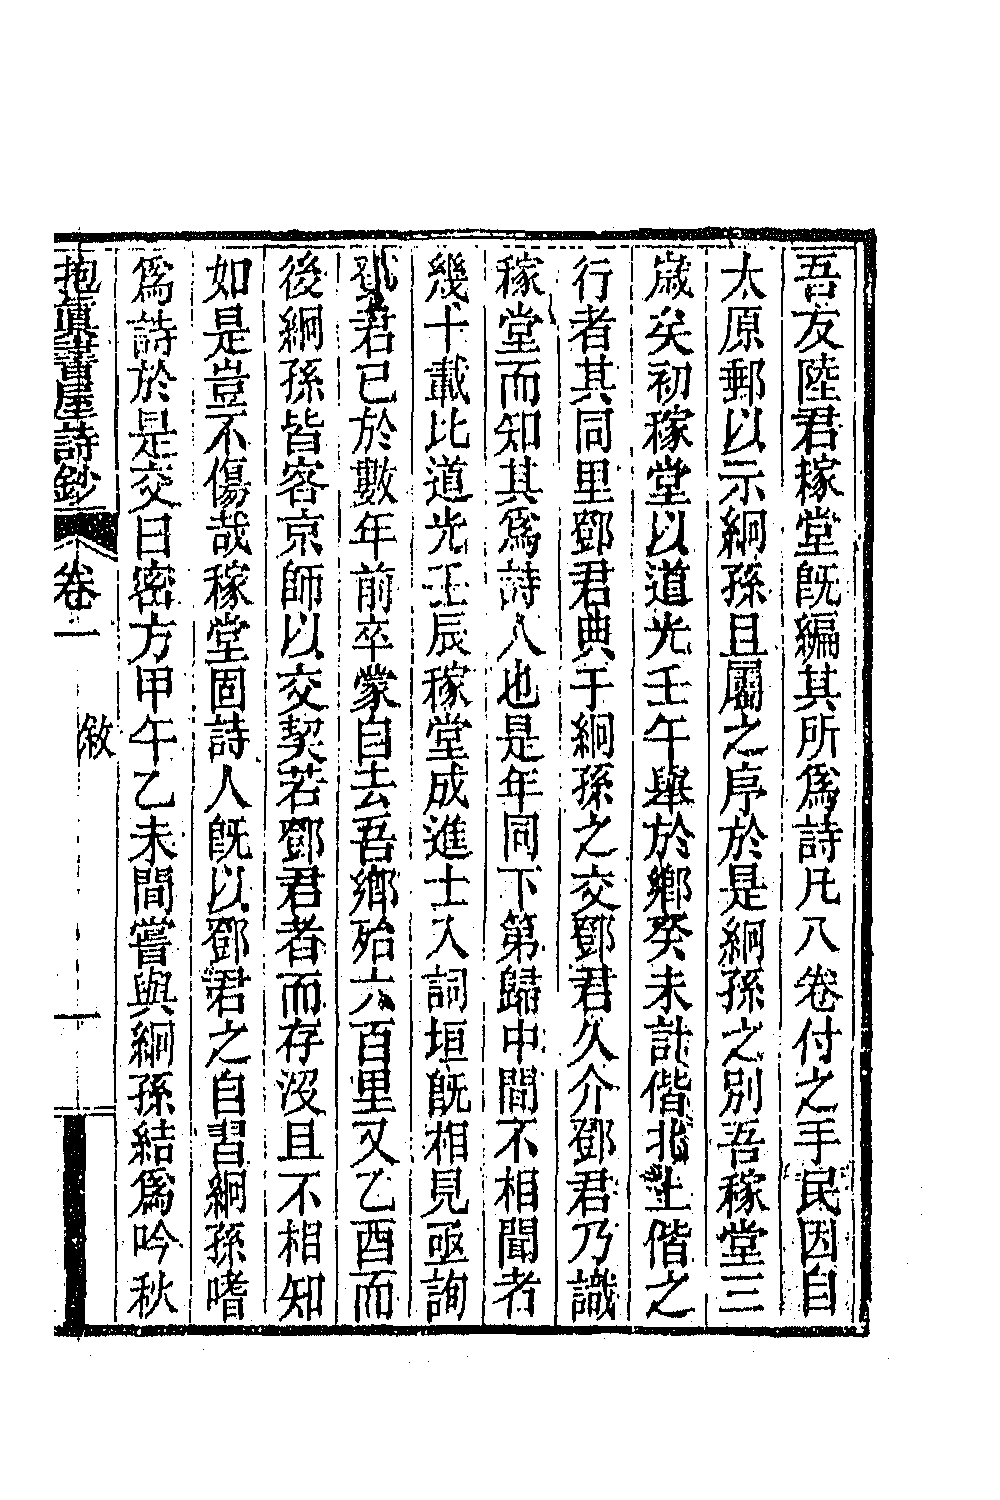 吾友陸君稼堂旣編其所爲詩凡八卷付之手民因自
太原郵以示絅孫且屬之序於是絅孫之別吾稼堂三
歲矣初稼堂以道光壬午舉於鄉癸未計偕北上偕之
行者其同里鄧君典于絅孫之交鄧君久介鄧君乃識
稼堂而知其爲詩人也是年同下第歸中間不相聞者
幾十載比道光壬辰稼堂成進士入詞垣旣相見亟詢
鄧君已於數年前卒蒙自去吾鄉殆六百里又乙酉而
後絅孫皆客京師以交契若鄧君者而存沒且不相知
如是豈不傷哉稼堂固詩人旣以鄧君之自習絅孫嗜
爲詩於是交日密方甲午乙未間嘗與絅孫結爲吟秋
抱眞書屋詩鈔 卷一 敘 一